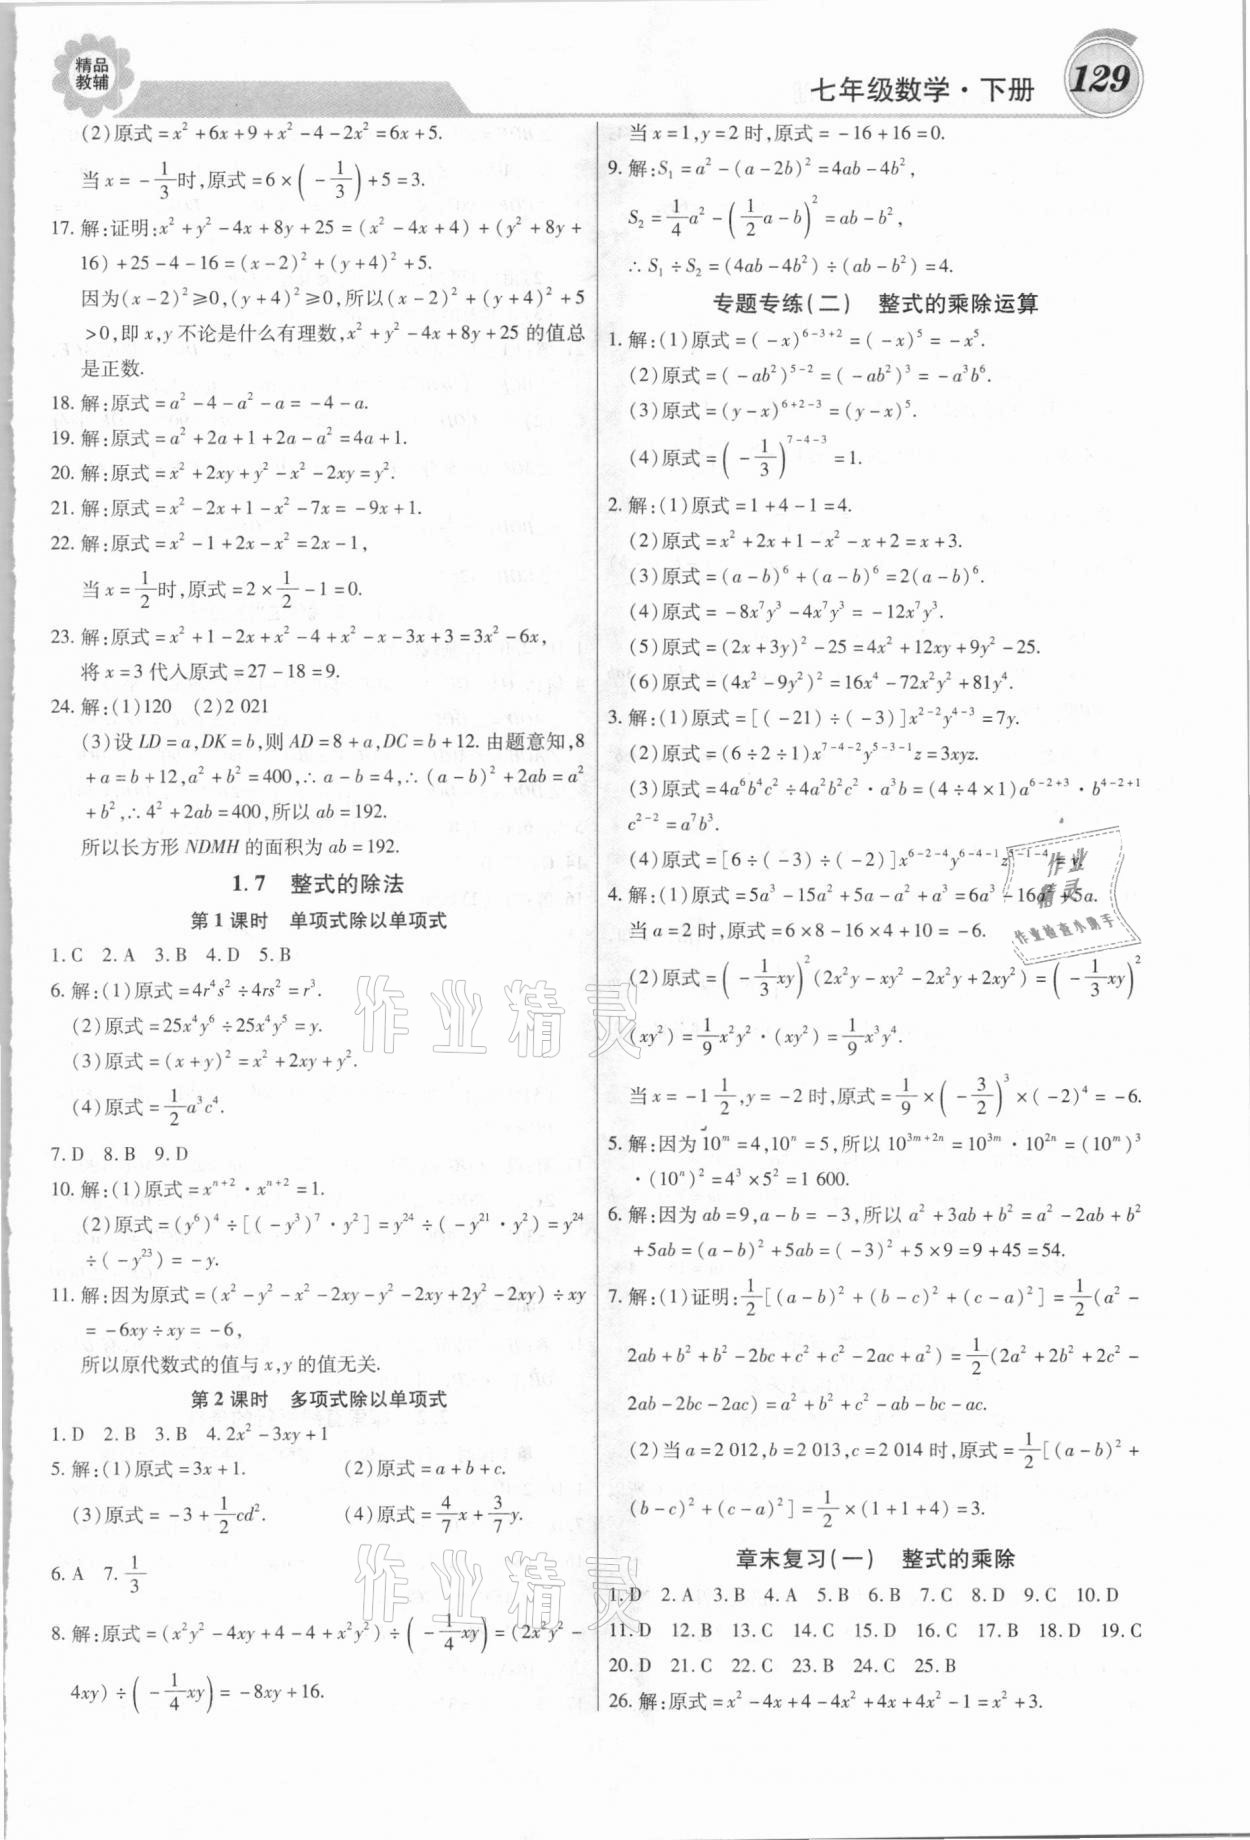 精品
教辅
七年级数学·下册
129
(2)原式=x²+6x+9+x²-4-2x²=6x+5.
当x=-1/3时,原式=6×(-1/3)+5=3.
17. 解:证明:x²+y²-4x+8y+25=(x²-4x+4)+(y²+8y+
16)+25-4-16=(x-2)²+(y+4)²+5.
因为(x-2)²≥0,(y+4)²≥0,所以(x-2)²+(y+4)²+5
>0,即x,y不论是什么有理数,x²+y²-4x+8y+25的值总
是正数.
18. 解:原式=a²-4-a²-a=-4-a.
19. 解:原式=a²+2a+1+2a-a²=4a+1.
20. 解:原式=x²+2xy+y²-x²-2xy=y².
21. 解:原式=x²-2x+1-x²-7x=-9x+1.
22. 解:原式=x²-1+2x-x²=2x-1,
当x=1/2时,原式=2×1/2-1=0.
23. 解:原式=x²+1-2x+x²-4+x²-x-3x+3=3x²-6x,
将x=3代入原式=27-18=9.
24. 解:(1)120 (2)2 021
(3)设LD=a,DK=b,则AD=8+a,DC=b+12. 由题意知,8
+a=b+12,a²+b²=400,∴a-b=4,∴(a-b)²+2ab=a²
+b²,∴4²+2ab=400,所以ab=192.
所以长方形NDMH的面积为ab=192.
1.7 整式的除法
第1课时 单项式除以单项式
1. C 2. A 3. B 4. D 5. B
6. 解:(1)原式=4r⁴s²÷4rs²=r³.
(2)原式=25x⁴y⁶÷25x⁴y⁵=y.
(3)原式=(x+y)²=x²+2xy+y².
(4)原式=1/2a³c⁴.
7. D 8. B 9. D
10. 解:(1)原式=xⁿ⁺²·xⁿ⁺²=1.
(2)原式=(y⁶)⁴÷[(-y³)⁷·y²]=y²⁴÷(-y²¹·y²)=y²⁴
÷(-y²³)=-y.
11. 解:因为原式=(x²-y²-x²-2xy-y²-2xy+2y²-2xy)÷xy
=-6xy÷xy=-6,
所以原代数式的值与x,y的值无关.
第2课时 多项式除以单项式
1. D 2. B 3. B 4. 2x²-3xy+1
5. 解:(1)原式=3x+1. (2)原式=a+b+c.
(3)原式=-3+1/2cd². (4)原式=4/7x+3/7y.
6. A 7. 1/3
8. 解:原式=(x²y²-4xy+4-4+x²y²)÷(-1/4xy)=(2x²y²-
4xy)÷(-1/4xy)=-8xy+16.
当x=1,y=2时,原式=-16+16=0.
9. 解:S₁=a²-(a-2b)²=4ab-4b²,
S₂=1/4a²-(1/2a-b)²=ab-b²,
∴S₁÷S₂=(4ab-4b²)÷(ab-b²)=4.
专题专练(二) 整式的乘除运算
1. 解:(1)原式=(-x)⁶⁻³⁺²=(-x)⁵=-x⁵.
(2)原式=(-ab²)⁵⁻²=(-ab²)³=-a³b⁶.
(3)原式=(y-x)⁶⁺²⁻³=(y-x)⁵.
(4)原式=(-1/3)⁷⁻⁴⁻³=1.
2. 解:(1)原式=1+4-1=4.
(2)原式=x²+2x+1-x²-x+2=x+3.
(3)原式=(a-b)⁶+(a-b)⁶=2(a-b)⁶.
(4)原式=-8x⁷y³-4x⁷y³=-12x⁷y³.
(5)原式=(2x+3y)²-25=4x²+12xy+9y²-25.
(6)原式=(4x²-9y²)²=16x⁴-72x²y²+81y⁴.
3. 解:(1)原式=[(-21)÷(-3)]x²⁻²y⁴⁻³=7y.
(2)原式=(6÷2÷1)x⁷⁻⁴⁻²y⁵⁻³⁻¹z=3xyz.
(3)原式=4a⁶b⁴c²÷4a²b²c²·a³b=(4÷4×1)a⁶⁻²⁺³·b⁴⁻²⁺¹
c²⁻²=a⁷b³.
(4)原式=[6÷(-3)÷(-2)]x⁶⁻²⁻⁴y⁶⁻⁴⁻¹z⁵⁻¹⁻⁴=y.
4. 解:(1)原式=5a³-15a²+5a-a²+a³=6a³-16a²+5a.
当a=2时,原式=6×8-16×4+10=-6.
(2)原式=(-1/3xy)²(2x²y-xy²-2x²y+2xy²)=(-1/3xy)²
(xy²)=1/9x²y²·(xy²)=1/9x³y⁴.
当x=-1 1/2,y=-2时,原式=1/9×(-3/2)³×(-2)⁴=-6.
5. 解:因为10ᵐ=4,10ⁿ=5,所以10³ᵐ⁺²ⁿ=10³ᵐ·10²ⁿ=(10ᵐ)³
·(10ⁿ)²=4³×5²=1 600.
6. 解:因为ab=9,a-b=-3,所以a²+3ab+b²=a²-2ab+b²
+5ab=(a-b)²+5ab=(-3)²+5×9=9+45=54.
7. 解:(1)证明:1/2[(a-b)²+(b-c)²+(c-a)²]=1/2(a²-
2ab+b²+b²-2bc+c²+c²-2ac+a²)=1/2(2a²+2b²+2c²-
2ab-2bc-2ac)=a²+b²+c²-ab-bc-ac.
(2)当a=2 012,b=2 013,c=2 014时,原式=1/2[(a-b)²+
(b-c)²+(c-a)²]=1/2×(1+1+4)=3.
章末复习(一) 整式的乘除
1. D 2. A 3. B 4. A 5. B 6. B 7. C 8. D 9. C 10. D
11. D 12. B 13. C 14. C 15. D 16. C 17. B 18. D 19. C
20. D 21. C 22. C 23. B 24. C 25. B
26. 解:原式=x²-4x+4-4x²+4x+4x²-1=x²+3.
作业精灵
作业精灵
作业
精灵
作业检查小助手